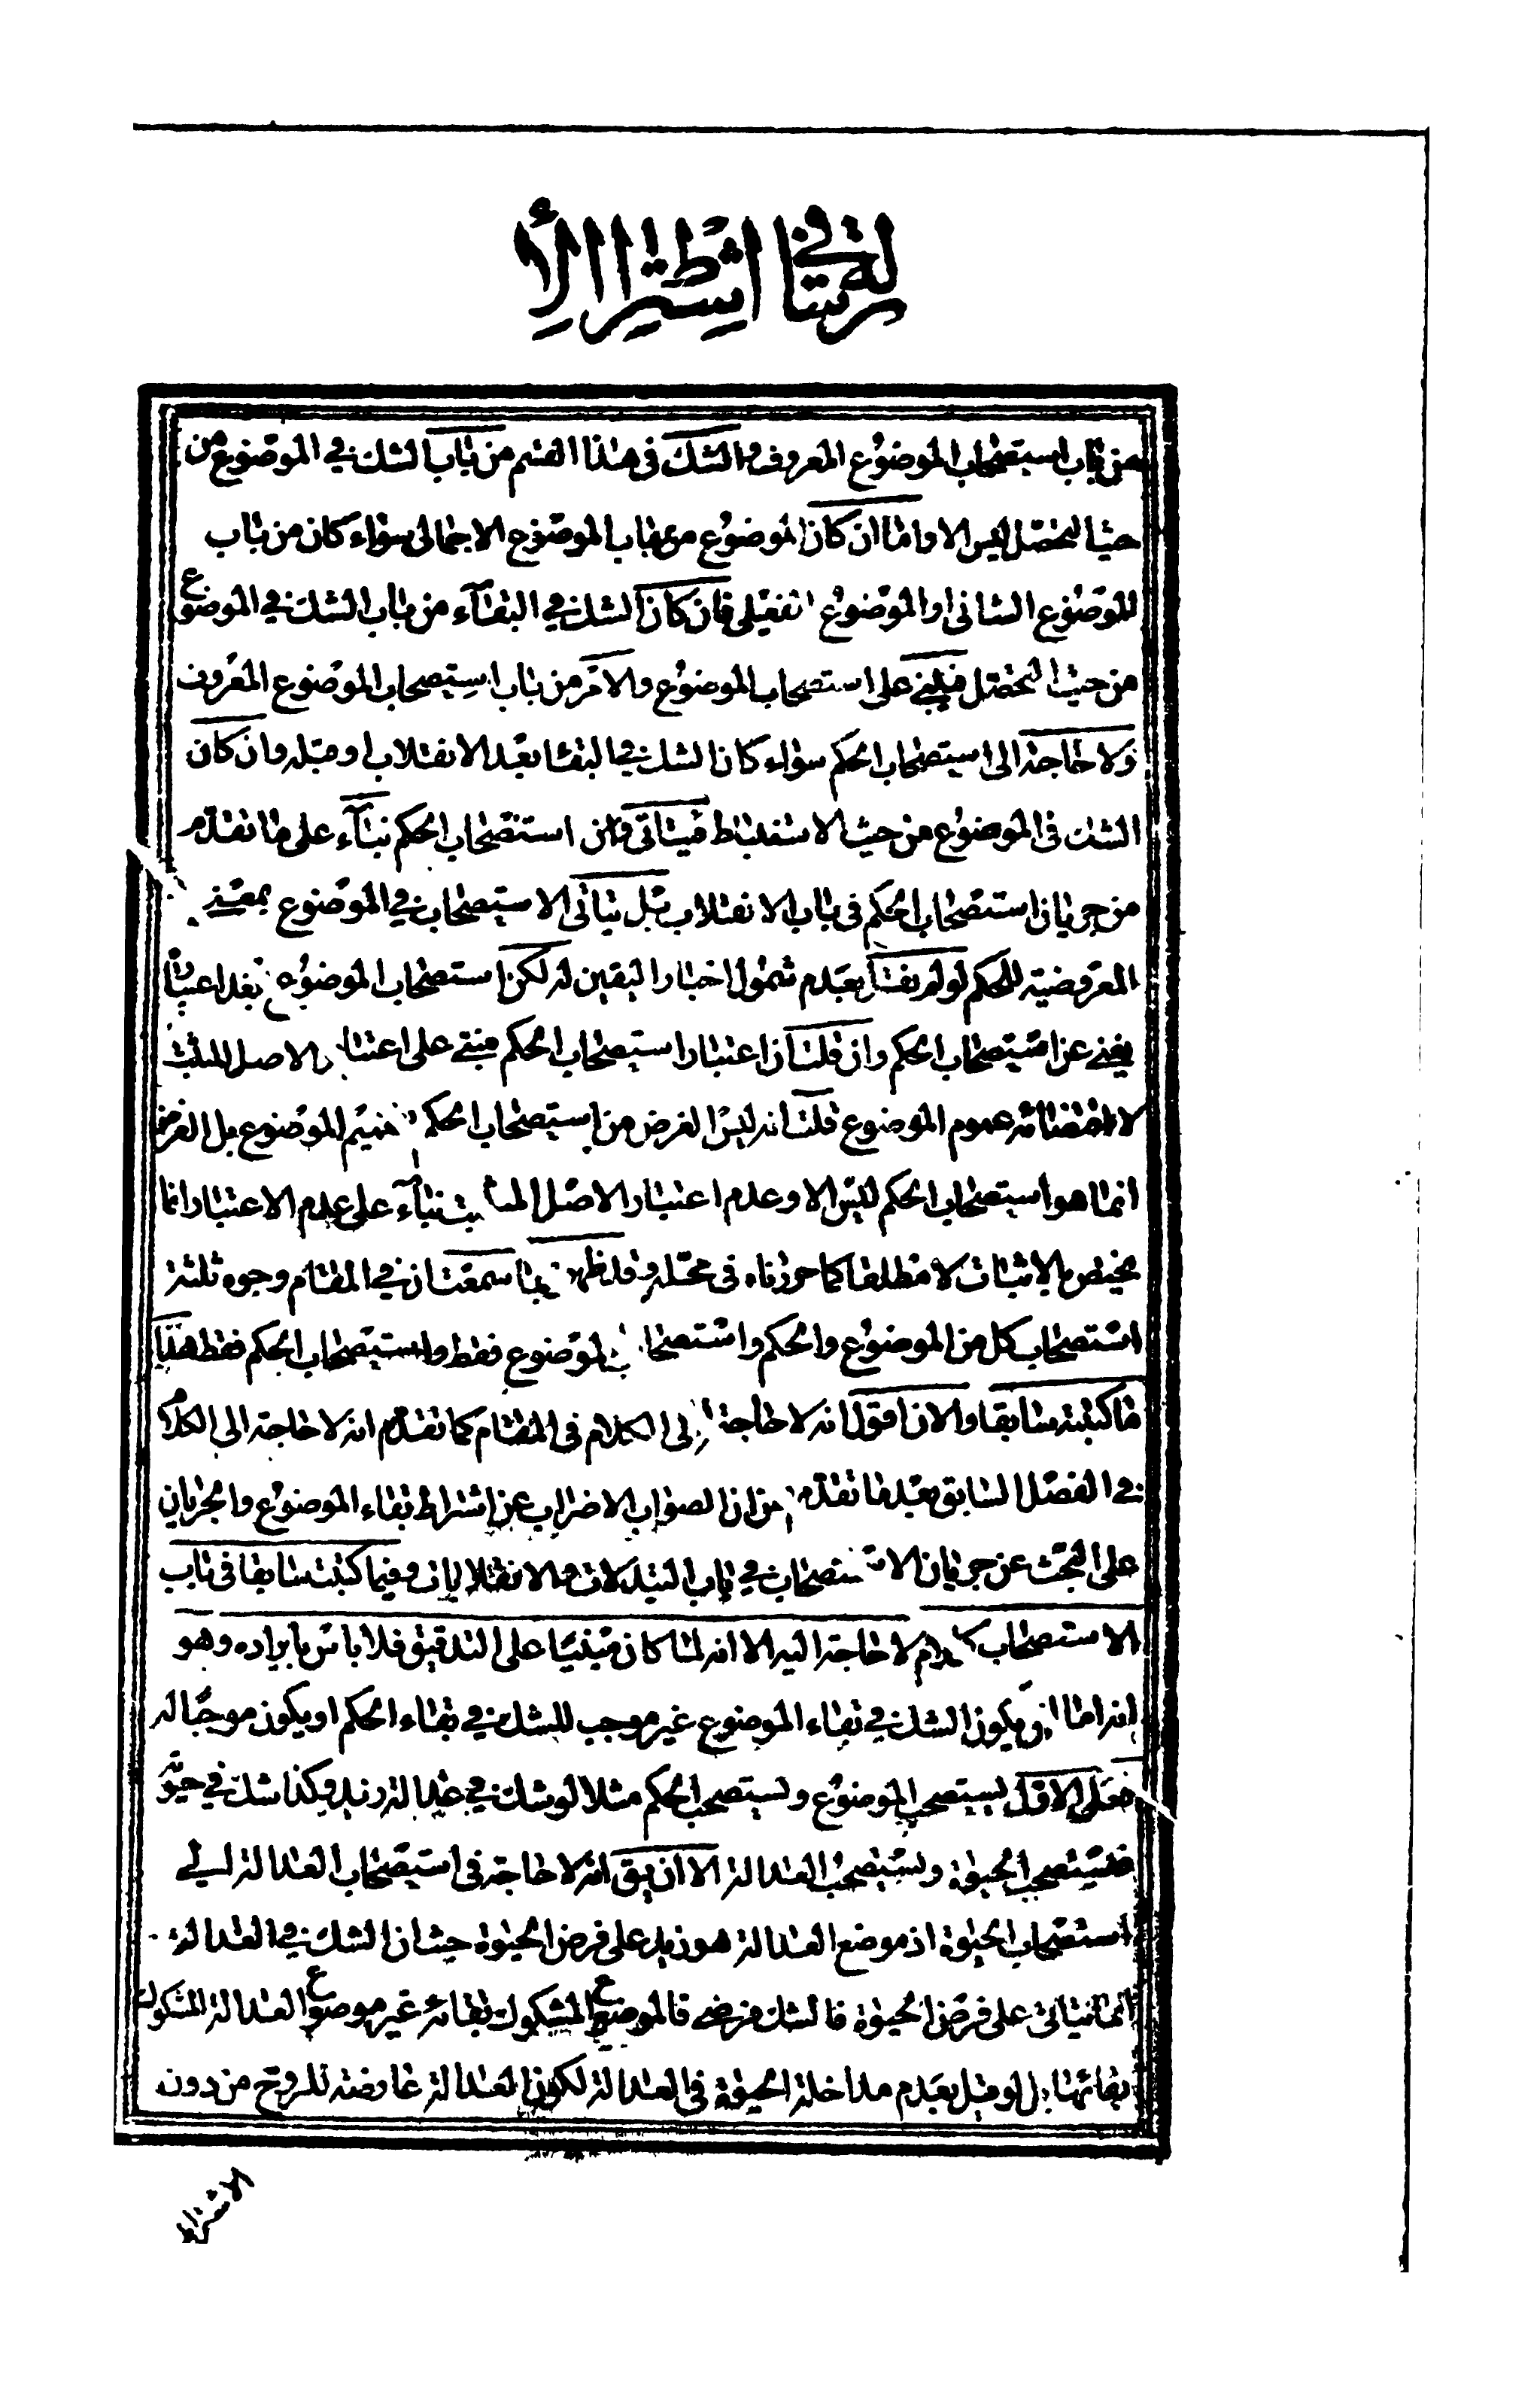 رسالة في اشتراط الأ
من باب استصحاب الموضوع المعروف والشك فى هذا القسم من باب الشك في الموضوع من
حيث التحصّل ليس الا واما ان كان الموضوع من باب الموضوع الاجمالى سواء كان من باب
الموضوع الشانى او الموضوع التفصيلى فان كان الشك في البقاء من باب الشك في الموضوع
من حيث التحصّل فيبنى على استصحاب الموضوع والامر من باب استصحاب الموضوع المعروف
ولا حاجة الى استصحاب الحكم سواء كان الشك في البقاء بعد الانقلاب او قبله وان كان
الشك فى الموضوع من حيث الاستنباط فيتاتى استصحاب الحكم بناء على ما تقدّم
من جريان استصحاب الحكم فى باب الانقلاب بل يتاتى الاستصحاب في الموضوع بمعنى
المعروضية للحكم لو لم نقل بعدم شمول اخبار اليقين له لكن استصحاب الموضوع بعد اعتباره
يغنى عن استصحاب الحكم وان قلت ان اعتبار استصحاب الحكم مبنى على اعتبار الاصل المثبت
لاقتضائه عموم الموضوع قلت انه ليس الغرض من استصحاب الحكم تتميم الموضوع بل الغرض
انما هو استصحاب الحكم ليس الا وعدم اعتبار الاصل المثبت بناء على عدم الاعتبار انما
يختص بالاثبات لا مطلقا كما حررناه فى محله وقد ظهر بما سمعت ان في المقام وجوه ثلثة
استصحاب كل من الموضوع والحكم واستصحاب الموضوع فقط واستصحاب الحكم فقط هذا
ما كتبته سابقا والان اقول انه لا حاجة الى الكلام فى المقام كما تقدّم انه لا حاجة الى الكلام
في الفصل السابق بعد ما تقدّم من ان الصواب الاضراب عن اشتراط بقاء الموضوع والجريان
على البحث عن جريان الاستصحاب في باب التبدلات والانقلابات وفيما كتبت سابقا فى باب
الاستصحاب كلام لا حاجة اليه الا انه لما كان مبنيا على التدقيق فلا باس بايراده وهو
انه اما ان يكون الشك في بقاء الموضوع غير موجب للشك في بقاء الحكم او يكون موجبا له
فعلى الاول يستصحب الموضوع ويستصحب الحكم مثلا لو شك في عدالة زيد وكذا شك في حيوته
فيستصحب الحيوة ويستصحب العدالة الا ان يق انه لا حاجة فى استصحاب العدالة الى
استصحاب الحيوة اذ موضع العدالة هو زيد على فرض الحيوة حيث ان الشك في العدالة
انما يتاتى على فرض الحيوة فالشك فرضى فالموضوع المشكوك بقائه غير موضوع العدالة المشكوك
بقائها بل لو قيل بعدم مداخلة الحيوة في العدالة لكون العدالة عارضة للروح من دون